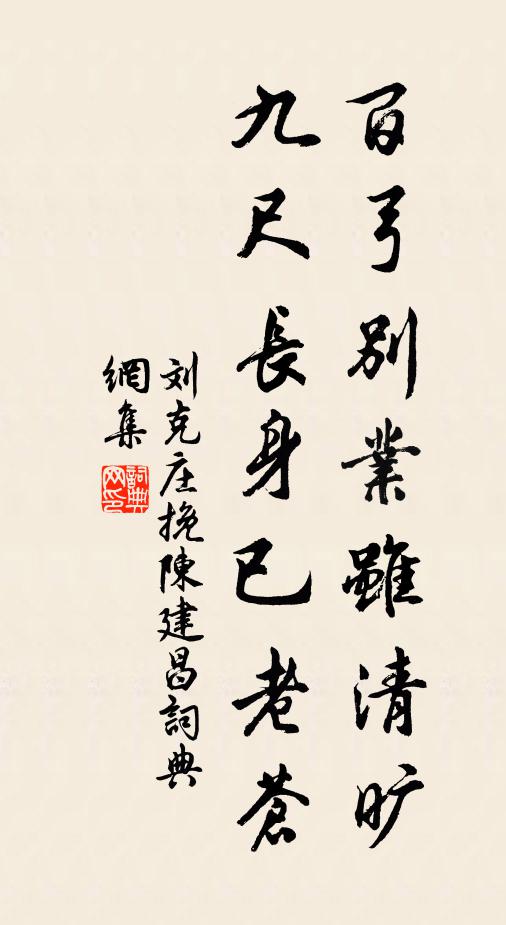 百弓別業雖清旷
九尺長身已老蒼
刘克庄挽陳建昌詞典
網集
詞典網印